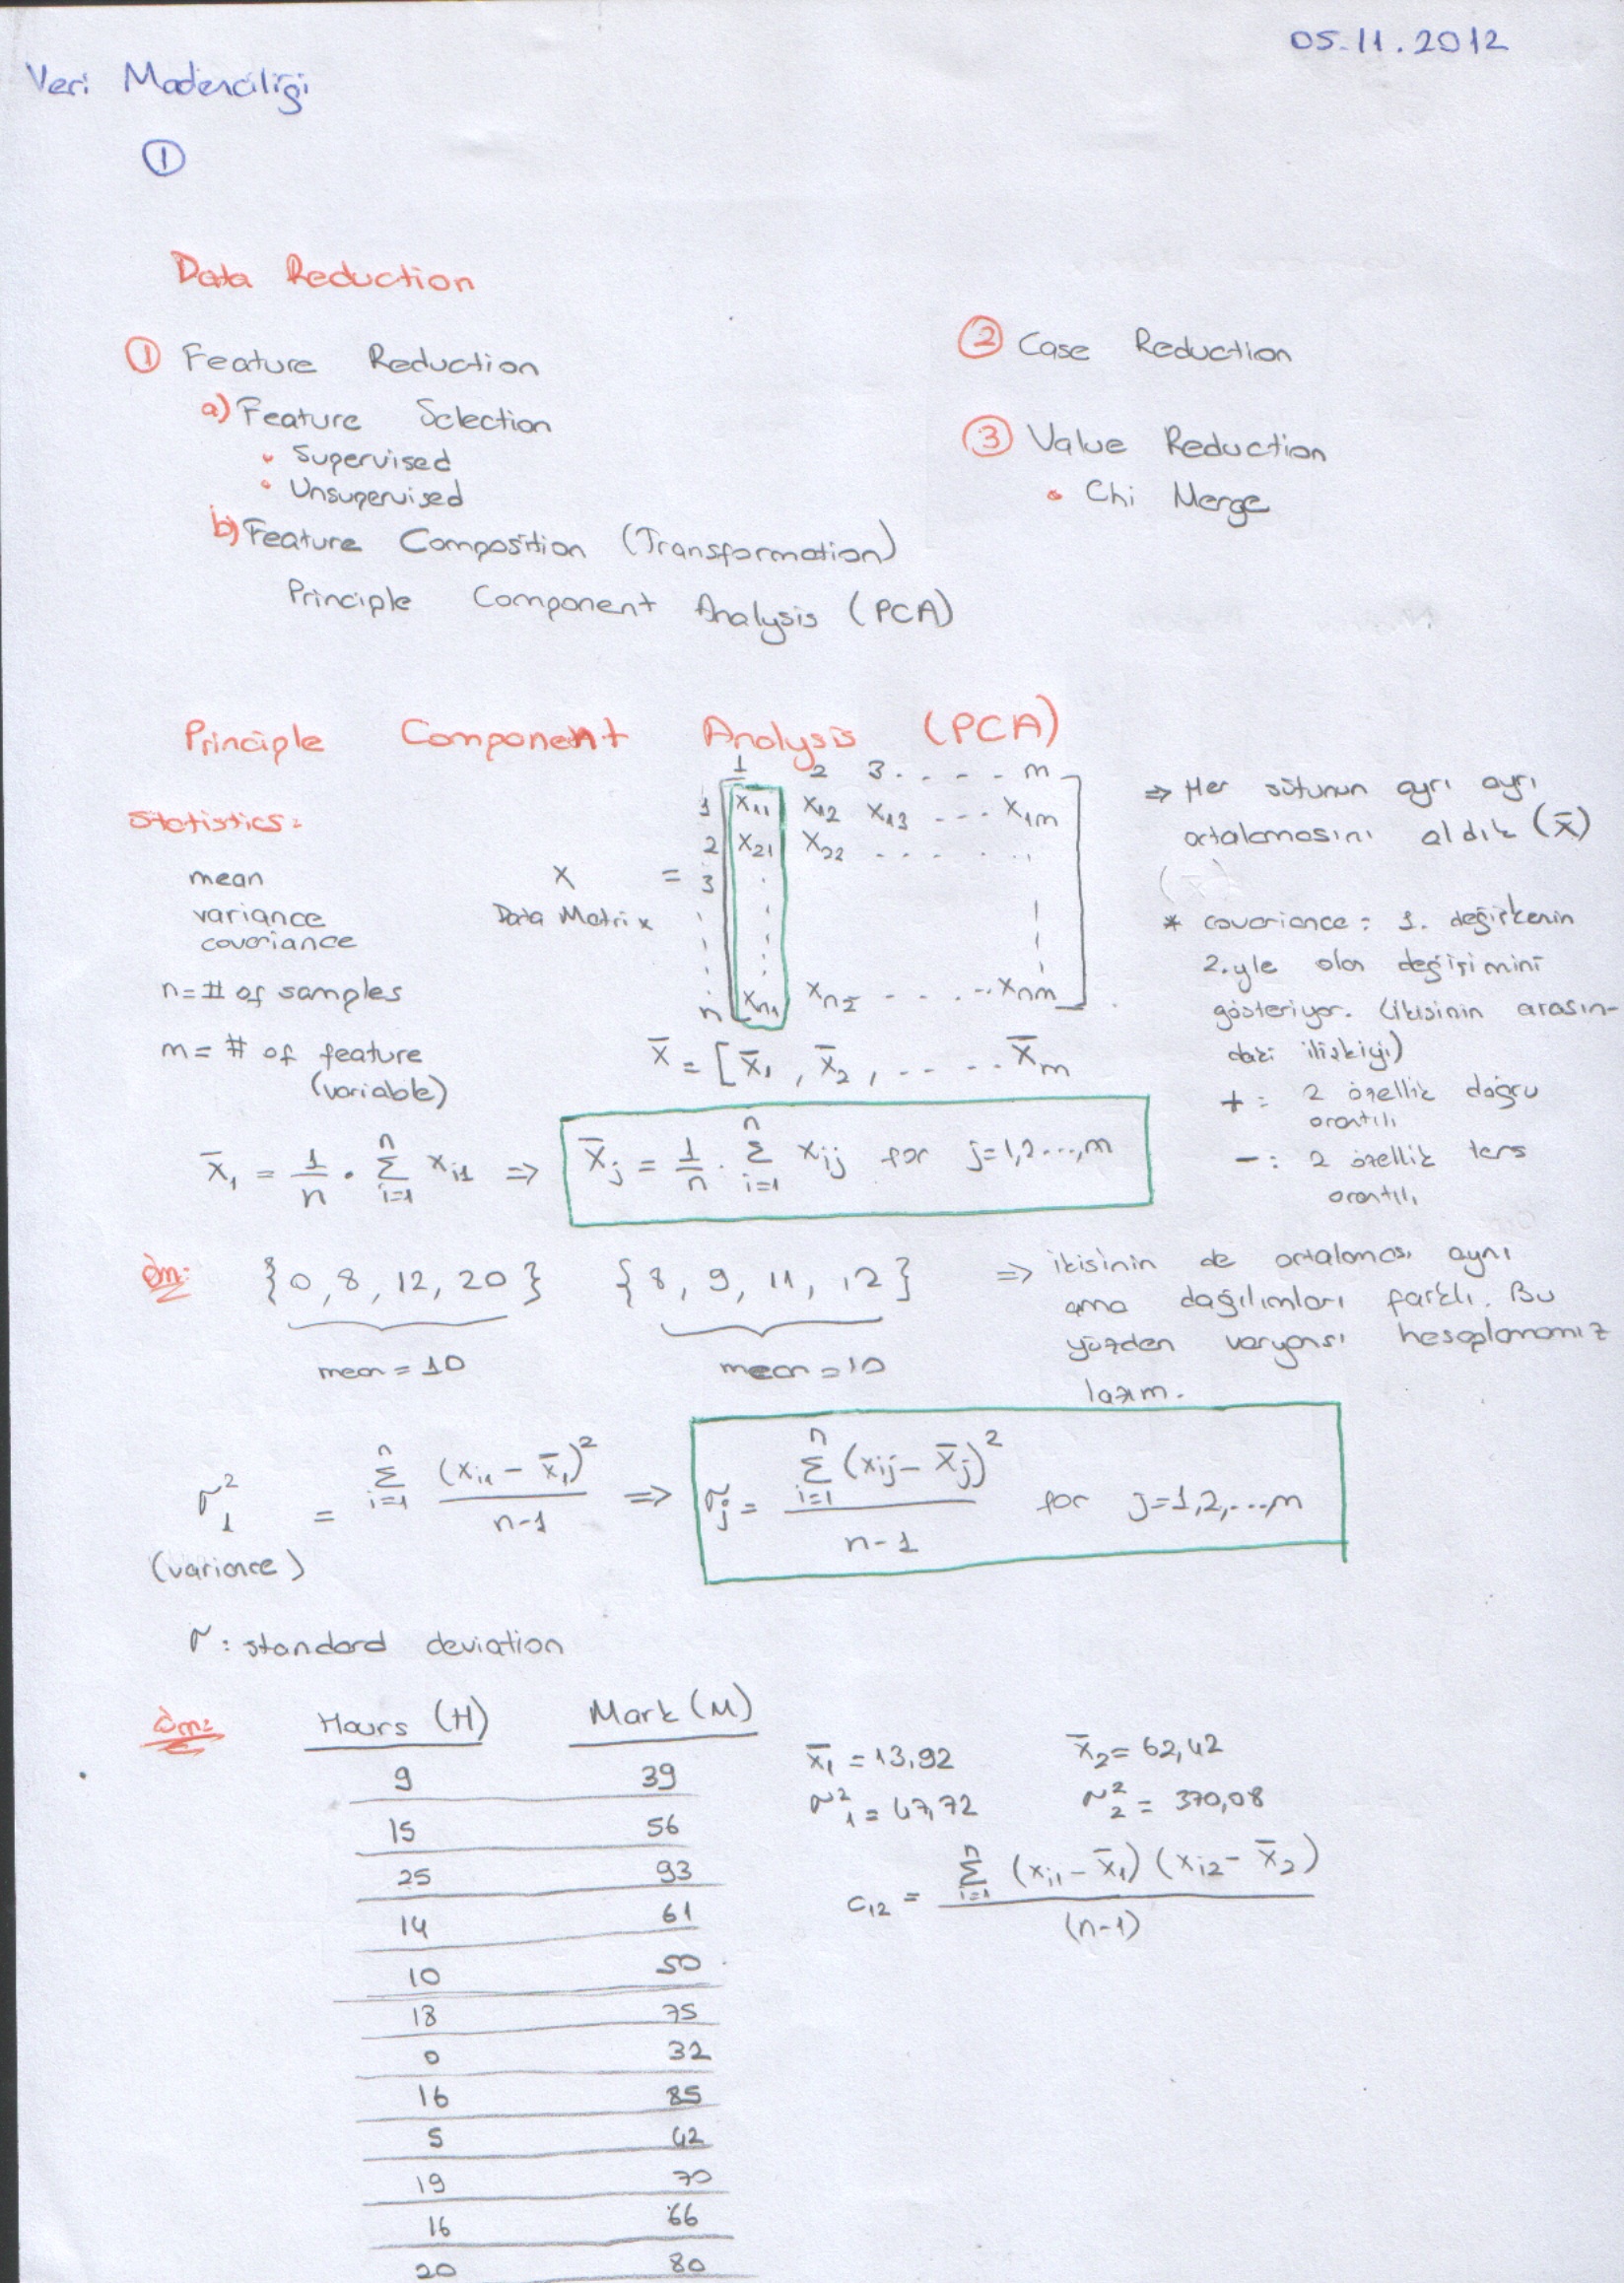 05.11.2012
Veri Madenciliği
1
Data Reduction
1 Feature Reduction
a) Feature Selection
• Supervised
• Unsupervised
b) Feature Composition (Transformation)
Principle Component Analysis (PCA)
2 Case Reduction
3 Value Reduction
• Chi Merge
Principle Component Analysis (PCA)
Statistics:
mean
variance
covariance
n = # of samples
m = # of feature
(variable)
X
Data Matrix
=
1 2 3 . . . . m
1 x₁₁ x₁₂ x₁₃ ... x₁m
2 x₂₁ x₂₂ . . . . . .
3
n xn₁ xn₂ - - . . .. xnm
x̄ = [x̄₁, x̄₂, . . . . . x̄m
⇒ Her sütunun ayrı ayrı
ortalamasını aldık (x̄)
* covariance : 1. değişkenin
2.yle olan değişimini
gösteriyor. (ikisinin arasın-
daki ilişkiyi)
+ : 2 özellik doğru
orantılı
- : 2 özellik ters
orantılı
x̄₁ = 1/n . n Σ i=1 xi1 ⇒ x̄j = 1/n . n Σ i=1 xij for j=1,2...,m
Örn: {0, 8, 12, 20} {8, 9, 11, 12}
mean = 10 mean = 10
⇒ ikisinin de ortalaması aynı
ama dağılımları farklı. Bu
yüzden varyansı hesaplamamız
lazım.
σ₁² = n Σ i=1 (xi1 - x̄₁)² / n-1 ⇒ σj = n Σ i=1 (xij - x̄j)² / n-1 for j=1,2,...m
(variance)
σ : standard deviation
Örn:
Hours (H) Mark (M)
9 39
15 56
25 93
14 61
10 50
18 75
0 32
16 85
5 42
19 70
16 66
20 80
x̄₁ = 13,92 x̄₂ = 62,42
σ²₁ = 47,72 σ²₂ = 370,08
c₁₂ = n Σ i=1 (xi1 - x̄₁) (xi2 - x̄₂) / (n-1)